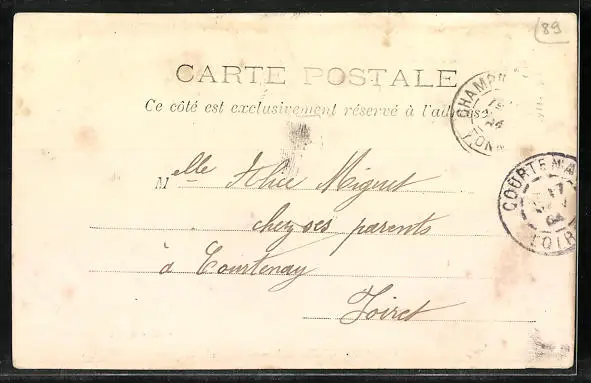 89
CARTE POSTALE
Ce côté est exclusivement réservé à l'adresse
CHAMP
YON
COURTENA
17
04
LOIR
Melle Alice Mignet
chez ses parents
à Courtenay
Loiret